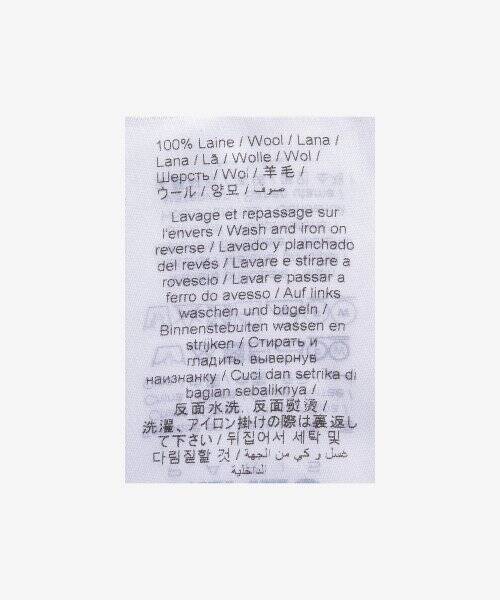 100% Laine / Wool / Lana /
Lana / Lã / Wolle / Wol /
Шерсть / Wol / 羊毛 /
ウール / 양모 / صوف
Lavage et repassage sur
l'envers / Wash and iron on
reverse / Lavado y planchado
del revés / Lavare e stirare a
rovescio / Lavar e passar a
ferro do avesso / Auf links
waschen und bügeln /
Binnenstebuiten wassen en
strijken / Стирать и
гладить, вывернув
наизнанку / Cuci dan setrika di
bagian sebaliknya /
反面水洗, 反面熨烫 /
洗濯、アイロン掛けの際は裏返し
て下さい / 뒤집어서 세탁 및
다림질할 것 / غسل و كي من الجهة
الداخلية